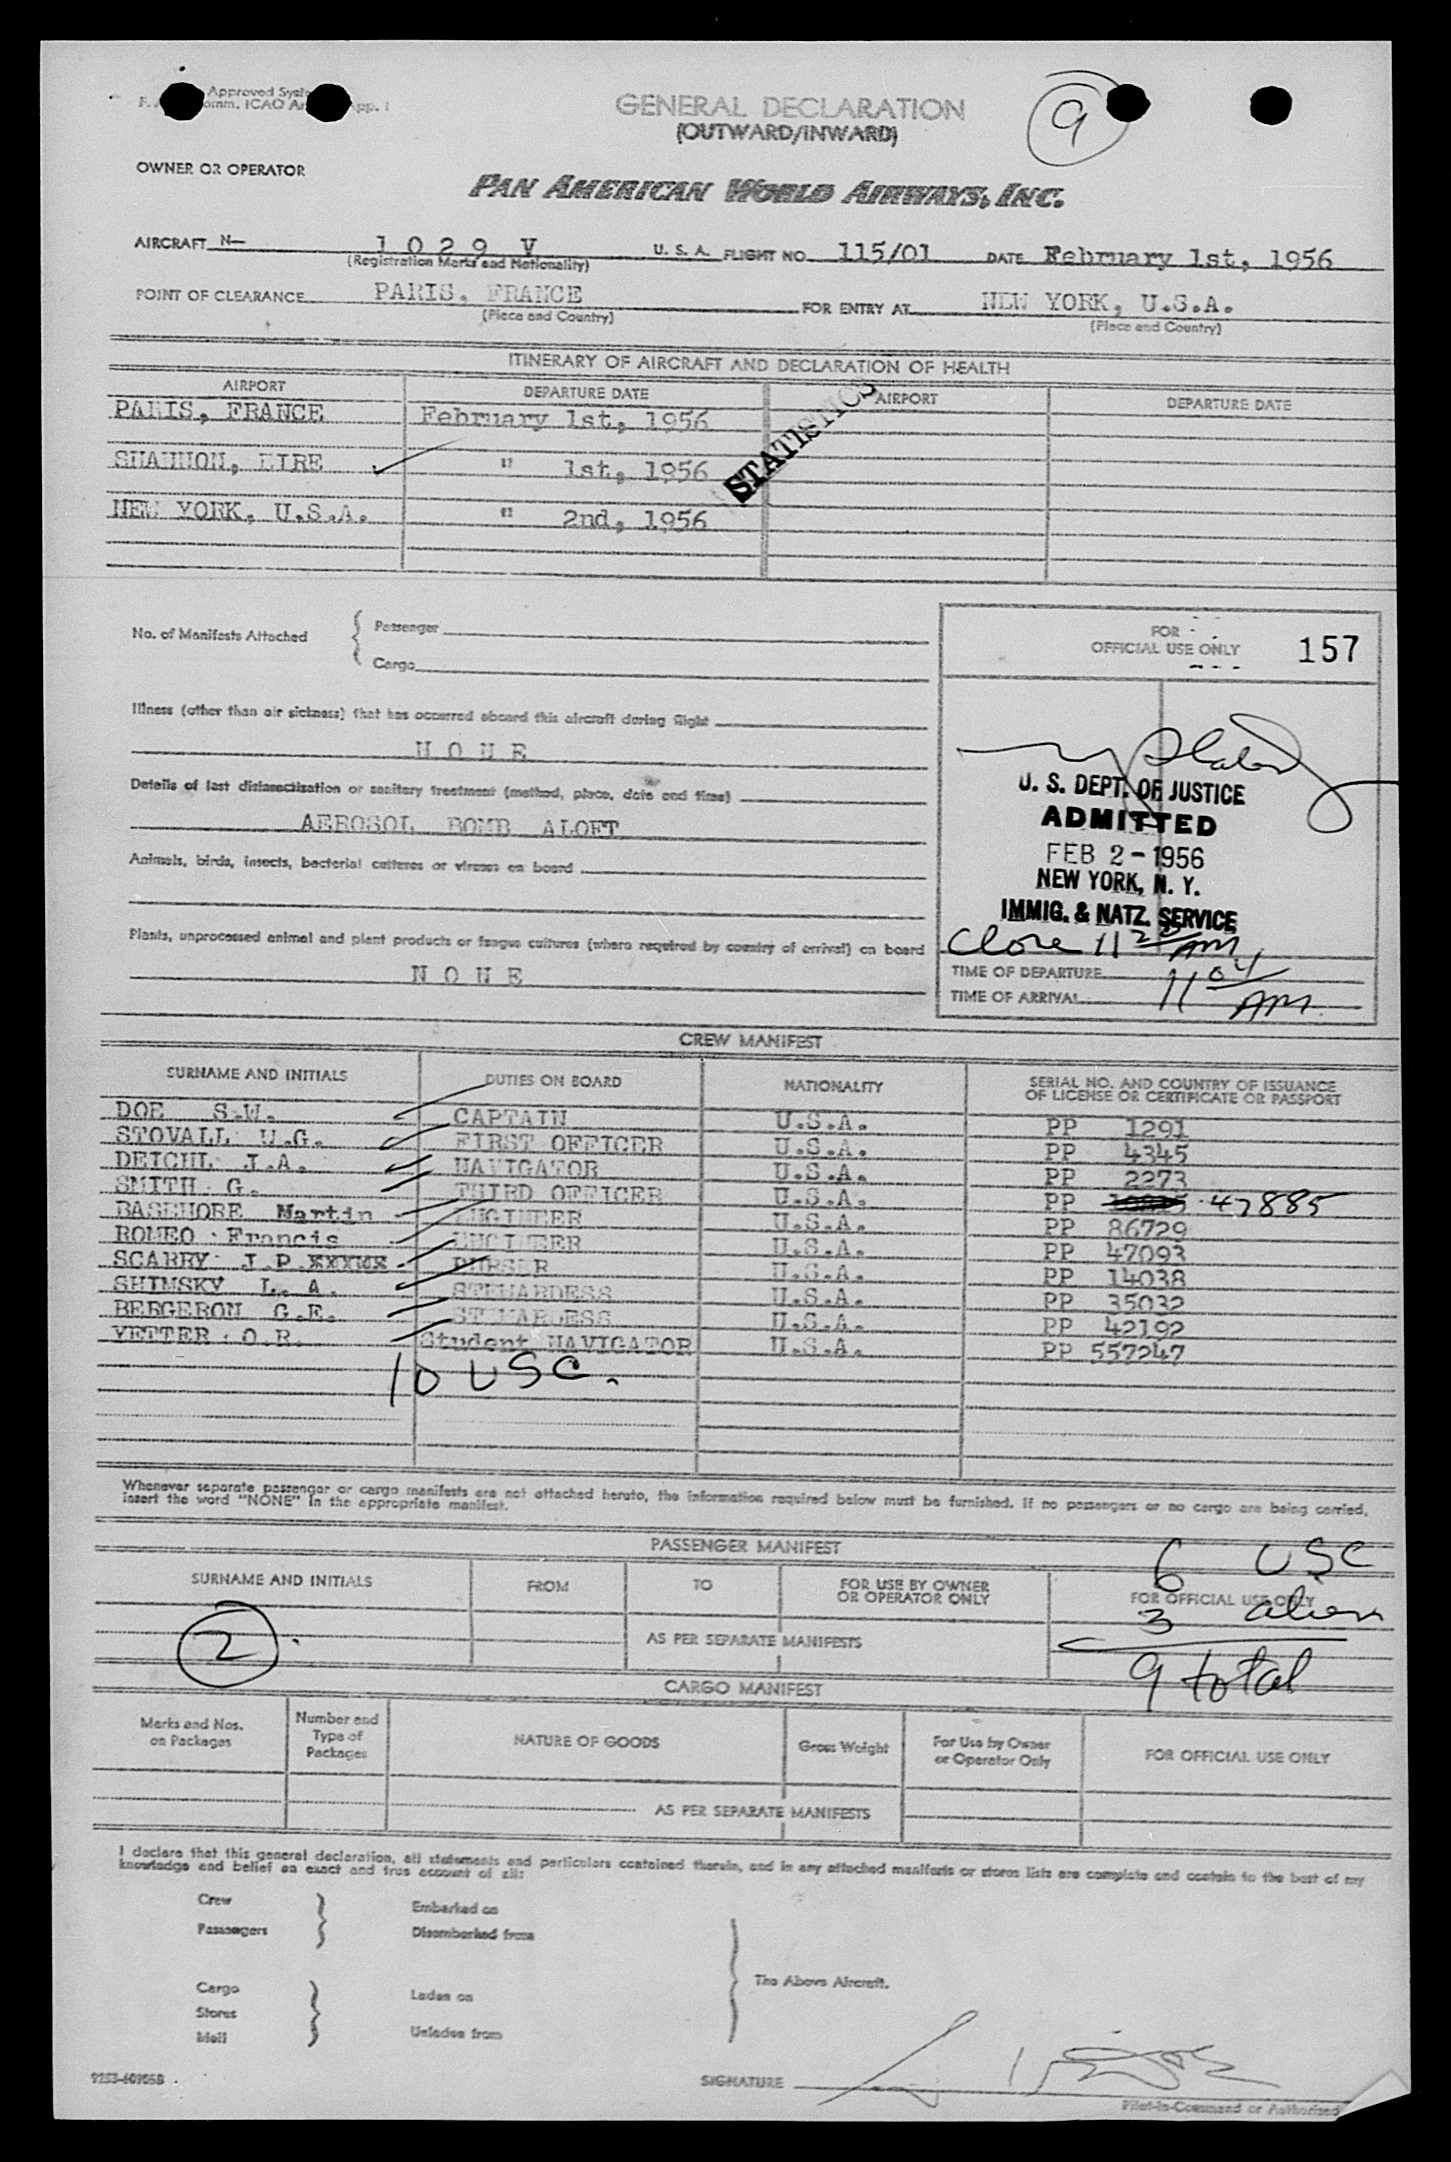 Approved
GENERAL DECLARATION
(OUTWARD/INWARD)
9
OWNER OR OPERATOR
PAN AMERICAN WORLD AIRWAYS, INC.
AIRCRAFT N— 1 0 2 9 V U. S. A. FLIGHT NO. 115/01 DATE February 1st, 1956
(Registration Marks and Nationality)
POINT OF CLEARANCE PARIS, FRANCE FOR ENTRY AT NEW YORK, U.S.A.
(Place and Country) (Place and Country)
ITINERARY OF AIRCRAFT AND DECLARATION OF HEALTH
AIRPORT DEPARTURE DATE AIRPORT DEPARTURE DATE
PARIS, FRANCE February 1st, 1956
SHANNON, EIRE " 1st, 1956
NEW YORK, U.S.A. " 2nd, 1956
STATISTICS
No. of Manifests Attached { Passenger
Cargo
FOR OFFICIAL USE ONLY 157
Illness (other than air sickness) that has occurred aboard this aircraft during flight
N O N E
Details of last disinsectization or sanitary treatment (method, place, date and time)
AEROSOL BOMB ALOFT
Animals, birds, insects, bacterial cultures or viruses on board
Plants, unprocessed animal and plant products or fungus cultures (where required by country of arrival) on board
N O N E
U. S. DEPT. OF JUSTICE
ADMITTED
FEB 2 - 1956
NEW YORK, N. Y.
IMMIG. & NATZ. SERVICE
Close 11 20 AM
TIME OF DEPARTURE
TIME OF ARRIVAL 11 04 AM
CREW MANIFEST
SURNAME AND INITIALS DUTIES ON BOARD NATIONALITY SERIAL NO. AND COUNTRY OF ISSUANCE
OF LICENSE OR CERTIFICATE OR PASSPORT
DOE S.W. CAPTAIN U.S.A. PP 1291
STOVALL W.G. FIRST OFFICER U.S.A. PP 4345
DEICHL J.A. NAVIGATOR U.S.A. PP 2273
SMITH G. THIRD OFFICER U.S.A. PP 47885
BASEHORE Martin ENGINEER U.S.A. PP 86729
ROMEO Francis ENGINEER U.S.A. PP 47093
SCARRY J.P. PURSER U.S.A. PP 14038
SHIMSKY L. A. STEWARDESS U.S.A. PP 35032
BERGERON G.E. STEWARDESS U.S.A. PP 42192
VETTER O.R. Student NAVIGATOR U.S.A. PP 557247
10 USC.
Whenever separate passenger or cargo manifests are not attached hereto, the information required below must be furnished. If no passengers or no cargo are being carried,
insert the word "NONE" in the appropriate manifest.
PASSENGER MANIFEST
SURNAME AND INITIALS FROM TO FOR USE BY OWNER OR OPERATOR ONLY FOR OFFICIAL USE ONLY
6 USC
3 alien
9 total
2
AS PER SEPARATE MANIFESTS
CARGO MANIFEST
Marks and Nos. on Packages Number and Type of Packages NATURE OF GOODS Gross Weight For Use by Owner or Operator Only FOR OFFICIAL USE ONLY
AS PER SEPARATE MANIFESTS
I declare that this general declaration, all statements and particulars contained therein, and in any attached manifests or stores lists are complete and contain to the best of my
knowledge and belief an exact and true account of all:
Crew Embarked on
Passengers Disembarked from
The Above Aircraft.
Cargo Laden on
Stores
Mail Unladen from
SIGNATURE
Pilot-in-Command or Authorized